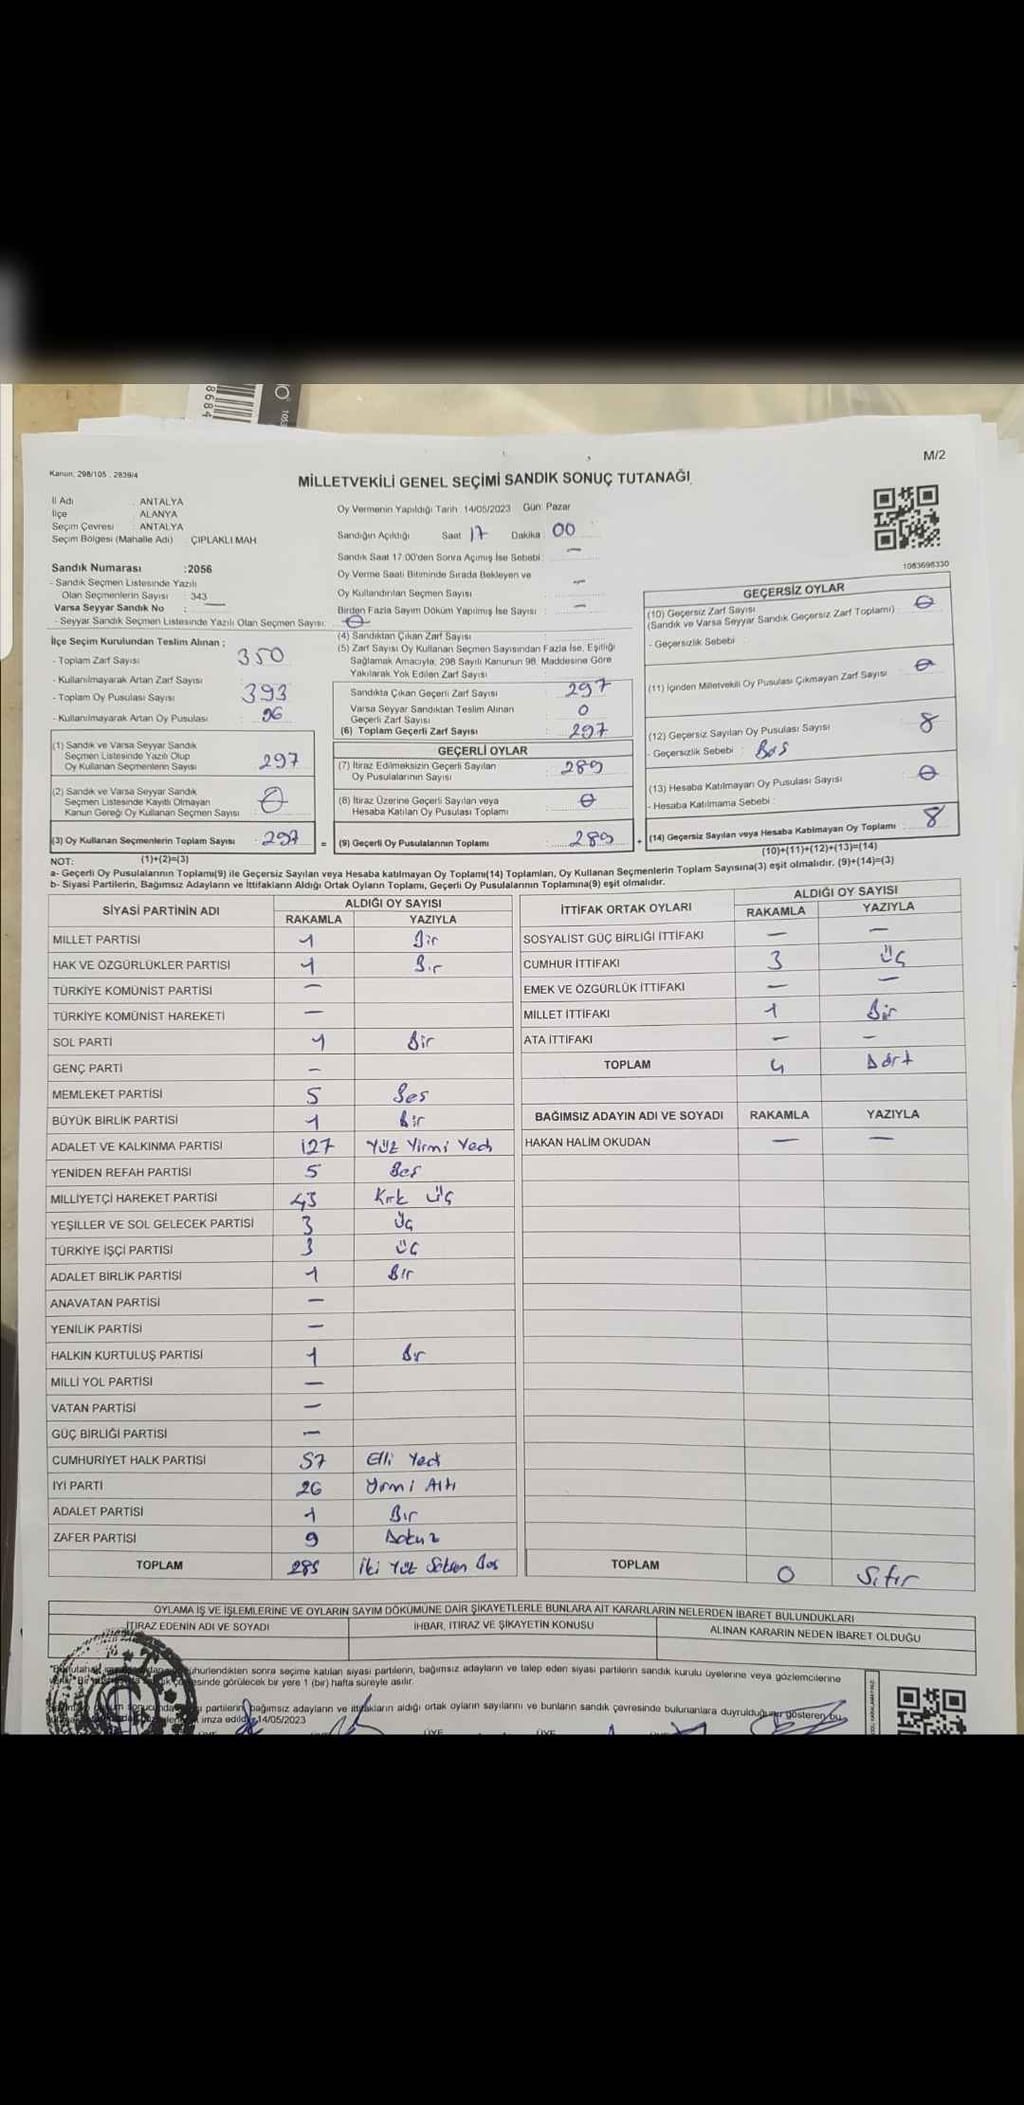 M/2
Kanun: 298/105 , 2839/4
MİLLETVEKİLİ GENEL SEÇİMİ SANDIK SONUÇ TUTANAĞI
İl Adı : ANTALYA
İlçe : ALANYA
Seçim Çevresi : ANTALYA
Seçim Bölgesi (Mahalle Adı) : ÇIPLAKLI MAH
Sandık Numarası :2056
- Sandık Seçmen Listesinde Yazılı
Olan Seçmenlerin Sayısı : 343
Varsa Seyyar Sandık No : —
- Seyyar Sandık Seçmen Listesinde Yazılı Olan Seçmen Sayısı: 0
Oy Vermenin Yapıldığı Tarih : 14/05/2023 Gün: Pazar
Sandığın Açıldığı Saat 17 Dakika : 00
Sandık Saat 17:00'den Sonra Açımış İse Sebebi : —
Oy Verme Saati Bitiminde Sırada Bekleyen ve
Oy Kullandırılan Seçmen Sayısı : —
Birden Fazla Sayım Döküm Yapılmış İse Sayısı : —
1083698330
İlçe Seçim Kurulundan Teslim Alınan ;
- Toplam Zarf Sayısı : 350
- Kullanılmayarak Artan Zarf Sayısı :
- Toplam Oy Pusulası Sayısı : 393
- Kullanılmayarak Artan Oy Pusulası : 96
(1) Sandık ve Varsa Seyyar Sandık
Seçmen Listesinde Yazılı Olup
Oy Kullanan Seçmenlerin Sayısı : 297
(2) Sandık ve Varsa Seyyar Sandık
Seçmen Listesinde Kayıtlı Olmayan
Kanun Gereği Oy Kullanan Seçmen Sayısı : 0
(3) Oy Kullanan Seçmenlerin Toplam Sayısı : 297
(4) Sandıktan Çıkan Zarf Sayısı :
(5) Zarf Sayısı Oy Kullanan Seçmen Sayısından Fazla İse, Eşitliği
Sağlamak Amacıyla, 298 Sayılı Kanunun 98. Maddesine Göre
Yakılarak Yok Edilen Zarf Sayısı :
Sandıkta Çıkan Geçerli Zarf Sayısı : 297
Varsa Seyyar Sandıktan Teslim Alınan
Geçerli Zarf Sayısı : 0
(6) Toplam Geçerli Zarf Sayısı : 297
GEÇERLİ OYLAR
(7) İtiraz Edilmeksizin Geçerli Sayılan
Oy Pusulalarının Sayısı : 289
(8) İtiraz Üzerine Geçerli Sayılan veya
Hesaba Katılan Oy Pusulası Toplamı : 0
= (9) Geçerli Oy Pusulalarının Toplamı : 289
GEÇERSİZ OYLAR
(10) Geçersiz Zarf Sayısı
(Sandık ve Varsa Seyyar Sandık Geçersiz Zarf Toplamı) : 0
- Geçersizlik Sebebi :
(11) İçinden Milletvekili Oy Pusulası Çıkmayan Zarf Sayısı : 0
(12) Geçersiz Sayılan Oy Pusulası Sayısı : 8
- Geçersizlik Sebebi : Boş
(13) Hesaba Katılmayan Oy Pusulası Sayısı : 0
- Hesaba Katılmama Sebebi :
+ (14) Geçersiz Sayılan veya Hesaba Katılmayan Oy Toplamı : 8
NOT: (1)+(2)=(3)
(10)+(11)+(12)+(13)=(14)
a- Geçerli Oy Pusulalarının Toplamı(9) ile Geçersiz Sayılan veya Hesaba katılmayan Oy Toplamı(14) Toplamları, Oy Kullanan Seçmenlerin Toplam Sayısına(3) eşit olmalıdır. (9)+(14)=(3)
b- Siyasi Partilerin, Bağımsız Adayların ve İttifakların Aldığı Ortak Oyların Toplamı, Geçerli Oy Pusulalarının Toplamına(9) eşit olmalıdır.
SİYASİ PARTİNİN ADI ALDIĞI OY SAYISI
RAKAMLA YAZIYLA
MİLLET PARTİSİ 1 Bir
HAK VE ÖZGÜRLÜKLER PARTİSİ 1 Bir
TÜRKİYE KOMÜNİST PARTİSİ —
TÜRKİYE KOMÜNİST HAREKETİ —
SOL PARTİ 1 Bir
GENÇ PARTİ —
MEMLEKET PARTİSİ 5 Beş
BÜYÜK BİRLİK PARTİSİ 1 Bir
ADALET VE KALKINMA PARTİSİ 127 Yüz Yirmi Yedi
YENİDEN REFAH PARTİSİ 5 Beş
MİLLİYETÇİ HAREKET PARTİSİ 43 Kırk Üç
YEŞİLLER VE SOL GELECEK PARTİSİ 3 Üç
TÜRKİYE İŞÇİ PARTİSİ 3 Üç
ADALET BİRLİK PARTİSİ 1 Bir
ANAVATAN PARTİSİ —
YENİLİK PARTİSİ —
HALKIN KURTULUŞ PARTİSİ 1 Bir
MİLLİ YOL PARTİSİ —
VATAN PARTİSİ —
GÜÇ BİRLİĞİ PARTİSİ —
CUMHURİYET HALK PARTİSİ 57 Elli Yedi
İYİ PARTİ 26 Yirmi Altı
ADALET PARTİSİ 1 Bir
ZAFER PARTİSİ 9 Dokuz
TOPLAM 285 İki Yüz Seksen Beş
İTTİFAK ORTAK OYLARI ALDIĞI OY SAYISI
RAKAMLA YAZIYLA
SOSYALİST GÜÇ BİRLİĞİ İTTİFAKI — —
CUMHUR İTTİFAKI 3 Üç
EMEK VE ÖZGÜRLÜK İTTİFAKI — —
MİLLET İTTİFAKI 1 Bir
ATA İTTİFAKI — —
TOPLAM 4 Dört
BAĞIMSIZ ADAYIN ADI VE SOYADI RAKAMLA YAZIYLA
HAKAN HALİM OKUDAN — —
TOPLAM 0 Sıfır
OYLAMA İŞ VE İŞLEMLERİNE VE OYLARIN SAYIM DÖKÜMÜNE DAİR ŞİKAYETLERLE BUNLARA AİT KARARLARIN NELERDEN İBARET BULUNDUKLARI
İTİRAZ EDENİN ADI VE SOYADI İHBAR, İTİRAZ VE ŞİKAYETİN KONUSU ALINAN KARARIN NEDEN İBARET OLDUĞU
sonra seçime katılan siyasi partilerin, bağımsız adayların ve talep eden siyasi partilerin sandık kurulu üyelerine veya gözlemcilerine
görülecek bir yere 1 (bir) hafta süreyle asılır.
partilerin, bağımsız adayların ve ittifakların aldığı ortak oyların sayılarını ve bunların sandık çevresinde bulunanlara duyurulduğunu gösteren bu
imza edildi. 14/05/2023
ÜYE ÜYE